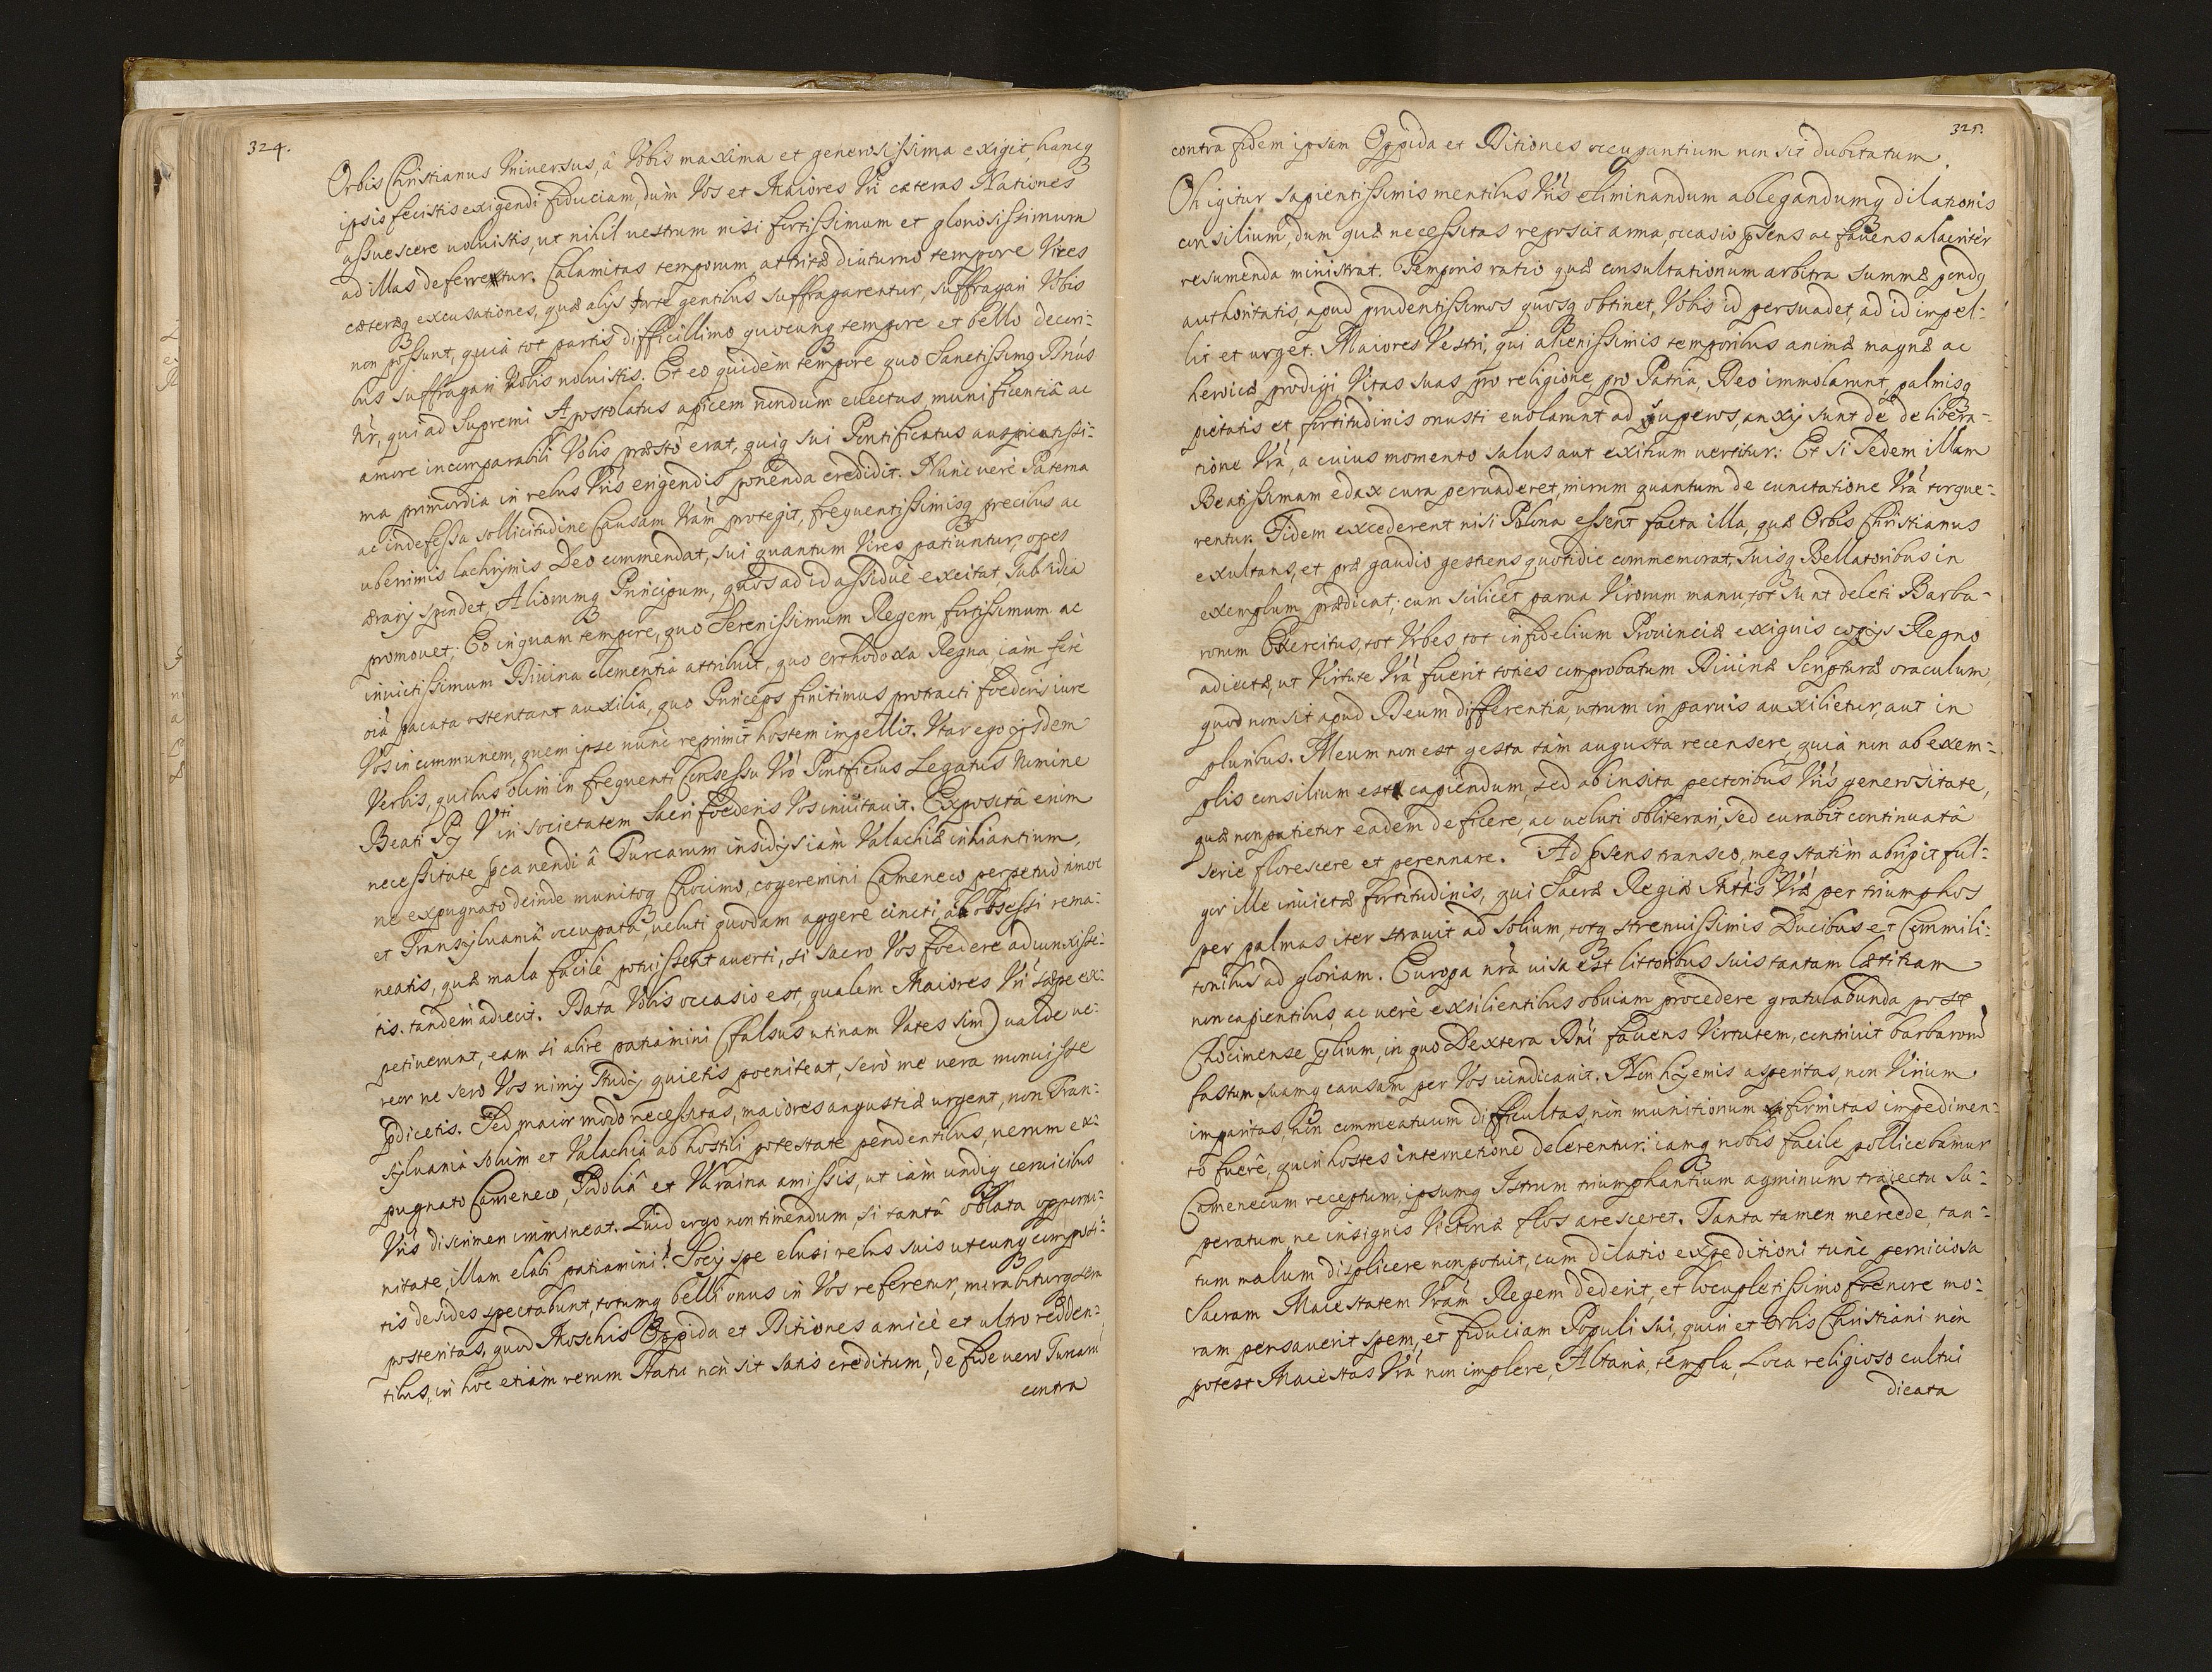 324.
Orbis Christianus Vniversus, â Vobis maxima et generosissima exigit, hancq
ipsis fecistis exigendi fiduciam, dùm Vos et Maiores Vri cæteras Nationes
assuescere voluistis, ut nihil vestrum nisi fortissimum et gloriosissimum
ad illas deferretur. Calamitas temporum attritæ diuturno tempore Vires
cæteræq excusationes, quæ alijs forte gentibus suffragarentur, suffragari Vobis
non possunt, quià tot partis difficillimo quocunq tempore et bello decori-
bus suffragari Vobis noluistis. Et eo quidèm tempore quo Sanctissimq Dnús
Nr, qui ad Supremi Apostolatus apicem nondum euectus, munificentiâ ac
amore incomparabili Vobis præstò erat, quiq sui Pontificatus auspicatissi-
ma primordia in rebus Vris erigendis ponenda credidit. Nunc verè Paterna
ac indefessa sollicitudine Causam Vram protegit, frequentissimisq precibus ac
uberrimis lachrymis Deo commendat, sui quantum Vires patiuntur, opes
ærarij spondet, Aliorumq Principum, quos ad id assiduè excitat, subsidia
promouet; Eo inquam tempore, quo Serenissimum Regem fortissimum ac
inuictissimum Diuina clementia attribuit, quo orthodoxa Regna iàm ferè
oiâ pacata ostentant auxilia, quo Princeps finitimus protracti foederis iure
Vos in communem, quem ipse nunc reprimit hostem impellit. Vtar ego ijsdem
Verbis, quibus olim in frequenti Consessu Vró Pontificius Legatus Nomine
Beati Pij Vti in societatem Sacri foederis Vos inuitauit. Expositâ enim
necessitate pcauendi â Turcarum insidijs iàm Valachiæ inhiantium,
ne expugnato deinde munitoq Chocimo, cogeremini Cameneco perpetuò timore
et Transyluaniâ occupatâ, veluti quodam aggere cincti, ac obsessi rema-
neatis, quæ mala facilè potuissent auerti, si sacro Vos foedere adiunxisse-
tis. tandem adiecit. Data Vobis occasio est, qualem Maiores Vri sæpe ex-
petiuerunt, eam si abire patiamini (falsus utinam Vates sim) valde ve-
reor ne sero Vos nimij studij quietis poeniteat, serò me vera monuisse
pdicetis. Sed maior modo necessitas, maiores angustiæ urgent, non Tran-
syluania solùm et Valachia ab hostili potestate pendentibus, verum ex-
pugnato Cameneco, Podoliâ et Vkraina amissis, ut iàm undiq ceruicibus
Vris discrimen immineat. Quid ergo non timendum, si tantâ oblata opportu-
nitate, illam elabi patiamini! Socij spe elusi rebus suis utcunq composi-
tis desides spectabunt, totumq belli onus in Vos referetur, mirabiturq sera
posteritas, quod Moschis Oppida et Ditiones amicè et ultro redden-
tibus, in hoc etiàm rerum statu non sit satis creditum, de fide vero Turcarú
contra
325.
contra fidem ipsam Oppida et Ditiones occupantium non sit dubitatum.
Oh igitur sapientissimis mentibus Vris eliminandum ablegandumq dilationis
consilium, dum quæ necessitas reposcit arma, occasio psens ac fauens alacritèr
resumenda ministrat. Temporis ratio quæ consultationum arbitra summæ pondq
authoritatis, apud prudentissimos quosq obtinet, Vobis id persuadet, ad id impel-
lit et urget. Maiores Vestri, qui alienissimis temporibus animæ magnæ ac
heroicæ prodigi, Vitas suas pro religione, pro Patria, Deo immolarunt, palmisq
pietatis et fortitudinis onusti euolarunt ad superos, anxij sunt de delibera-
tione Vrá, a cuius momento salus aut exitium vertitur. Et si Sedem illam
Beatissimam edax cura peruaderet, mirum quantum de cunctatione Vrá torque-
rentur. Fidem excederent nisi Polona essent facta illa, quæ Orbis Christianus
exultans, et præ gaudio gestiens quotidie commemorat, suisq Bellatoribus in
exemplum prædicat; cum scilicet parua Virorum manu, tot sunt deleti Barba-
rorum Exercitus, tot Vrbes, tot infidelium Prouinciæ exiguis copijs Regno
adiectæ, ut Virtute Vrá fuerit toties comprobatum Diuinæ Scripturæ oraculum,
quod non sit apud Deum differentia, utrum in paruis auxilietur, aut in
pluribus. Meum non est gesta tàm augusta recensere, quià non ab exem-
plis consilium est capiendum, sed ab insita pectoribus Vris generositate,
quæ non patietur eadem deficere, ac veluti obliterari, sed curabit continuatâ
serie florescere et perennare. Ad psens transeo, meq statìm abripit ful-
gor ille inuictæ fortitudinis, qui Sacræ Regiæ Mtis Vræ per triumphos
per palmas iter strauit ad solium, totq strenuissimis Ducibus et Commili-
tonibus ad gloriam. Europa nrà uisa est littoribus suis tantam lætitiam
non capientibus, ac verè exilientibus obuiam procedere gratulabunda post
Chocimense prlium, in quo Dextera Dni fauens Virtutem, contriuit barbarorú
fastum, suamq causam per Vos uindicauit. Non hyemis asperitas, non Virium
imparitas, non commeatuum difficultas, non munitionum firmitas impedimen-
to fuêre, quin hostes internetione delerentur: iamq nobis facile pollicebamur
Camenecum receptum, ipsumq Istrum triumphantium agminum traiectu su-
peratum, ne insignis Victoriæ flos aresceret. Tanta tamen mercede, tan-
tum malum displicere non potuit, cum dilatio expeditioni tunc perniciosa
Sacram Maiestatem Vram Regem dederit, et locupletissimo foenore mo-
ram pensauerit spem, et fiduciam Populi sui, quin et Orbis Christiani non
potest Maiestas Vrà non implere, Altaria, templa, Loca religioso cultui
dicata